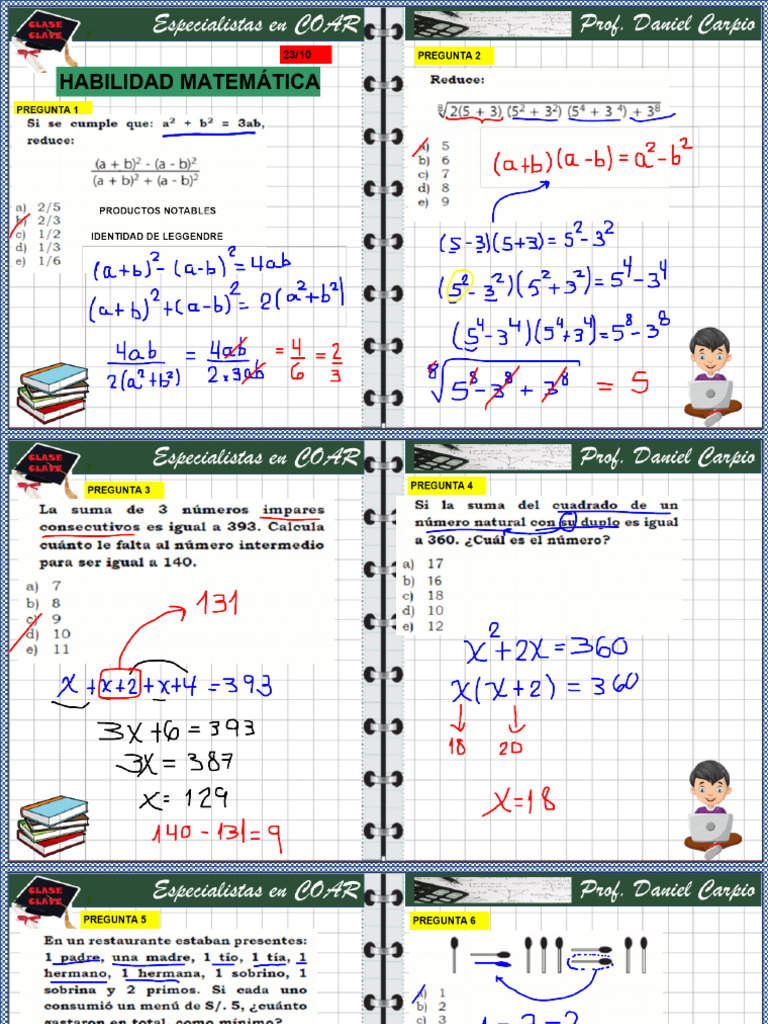 CLASE CLAVE
Especialistas en COAR
23/10
HABILIDAD MATEMÁTICA
PREGUNTA 1
Si se cumple que: a² + b² = 3ab,
reduce:
(a + b)² - (a - b)²
(a + b)² + (a - b)²
a) 2/5
b) 2/3
c) 1/2
d) 1/3
e) 1/6
PRODUCTOS NOTABLES
IDENTIDAD DE LEGGENDRE
(a+b)² - (a-b)² = 4ab
(a+b)² + (a-b)² = 2(a²+b²)
4ab / 2(a²+b²) = 4ab / 2×3ab = 4/6 = 2/3
Prof. Daniel Carpio
PREGUNTA 2
Reduce:
⁸√2(5 + 3) (5² + 3²) (5⁴ + 3 ⁴) + 3⁸
a) 5
b) 6
c) 7
d) 8
e) 9
(a+b)(a-b) = a²-b²
(5-3)(5+3) = 5²-3²
(5²-3²)(5²+3²) = 5⁴-3⁴
(5⁴-3⁴)(5⁴+3⁴) = 5⁸-3⁸
⁸√5⁸-3⁸+3⁸ = 5
CLASE CLAVE
Especialistas en COAR
PREGUNTA 3
La suma de 3 números impares
consecutivos es igual a 393. Calcula
cuánto le falta al número intermedio
para ser igual a 140.
a) 7
b) 8
c) 9
d) 10
e) 11
131
x + x+2 + x+4 = 393
3x+6 = 393
3x = 387
x = 129
140 - 131 = 9
Prof. Daniel Carpio
PREGUNTA 4
Si la suma del cuadrado de un
número natural con su duplo es igual
a 360. ¿Cuál es el número?
a) 17
b) 16
c) 18
d) 10
e) 12
x²+2x = 360
x(x+2) = 360
18 20
x=18
CLASE CLAVE
Especialistas en COAR
PREGUNTA 5
En un restaurante estaban presentes:
1 padre, una madre, 1 tío, 1 tía, 1
hermano, 1 hermana, 1 sobrino, 1
sobrina y 2 primos. Si cada uno
consumió un menú de S/. 5, ¿cuánto
gastaron en total, como mínimo?
Prof. Daniel Carpio
PREGUNTA 6
a) 1
b) 2
c) 3